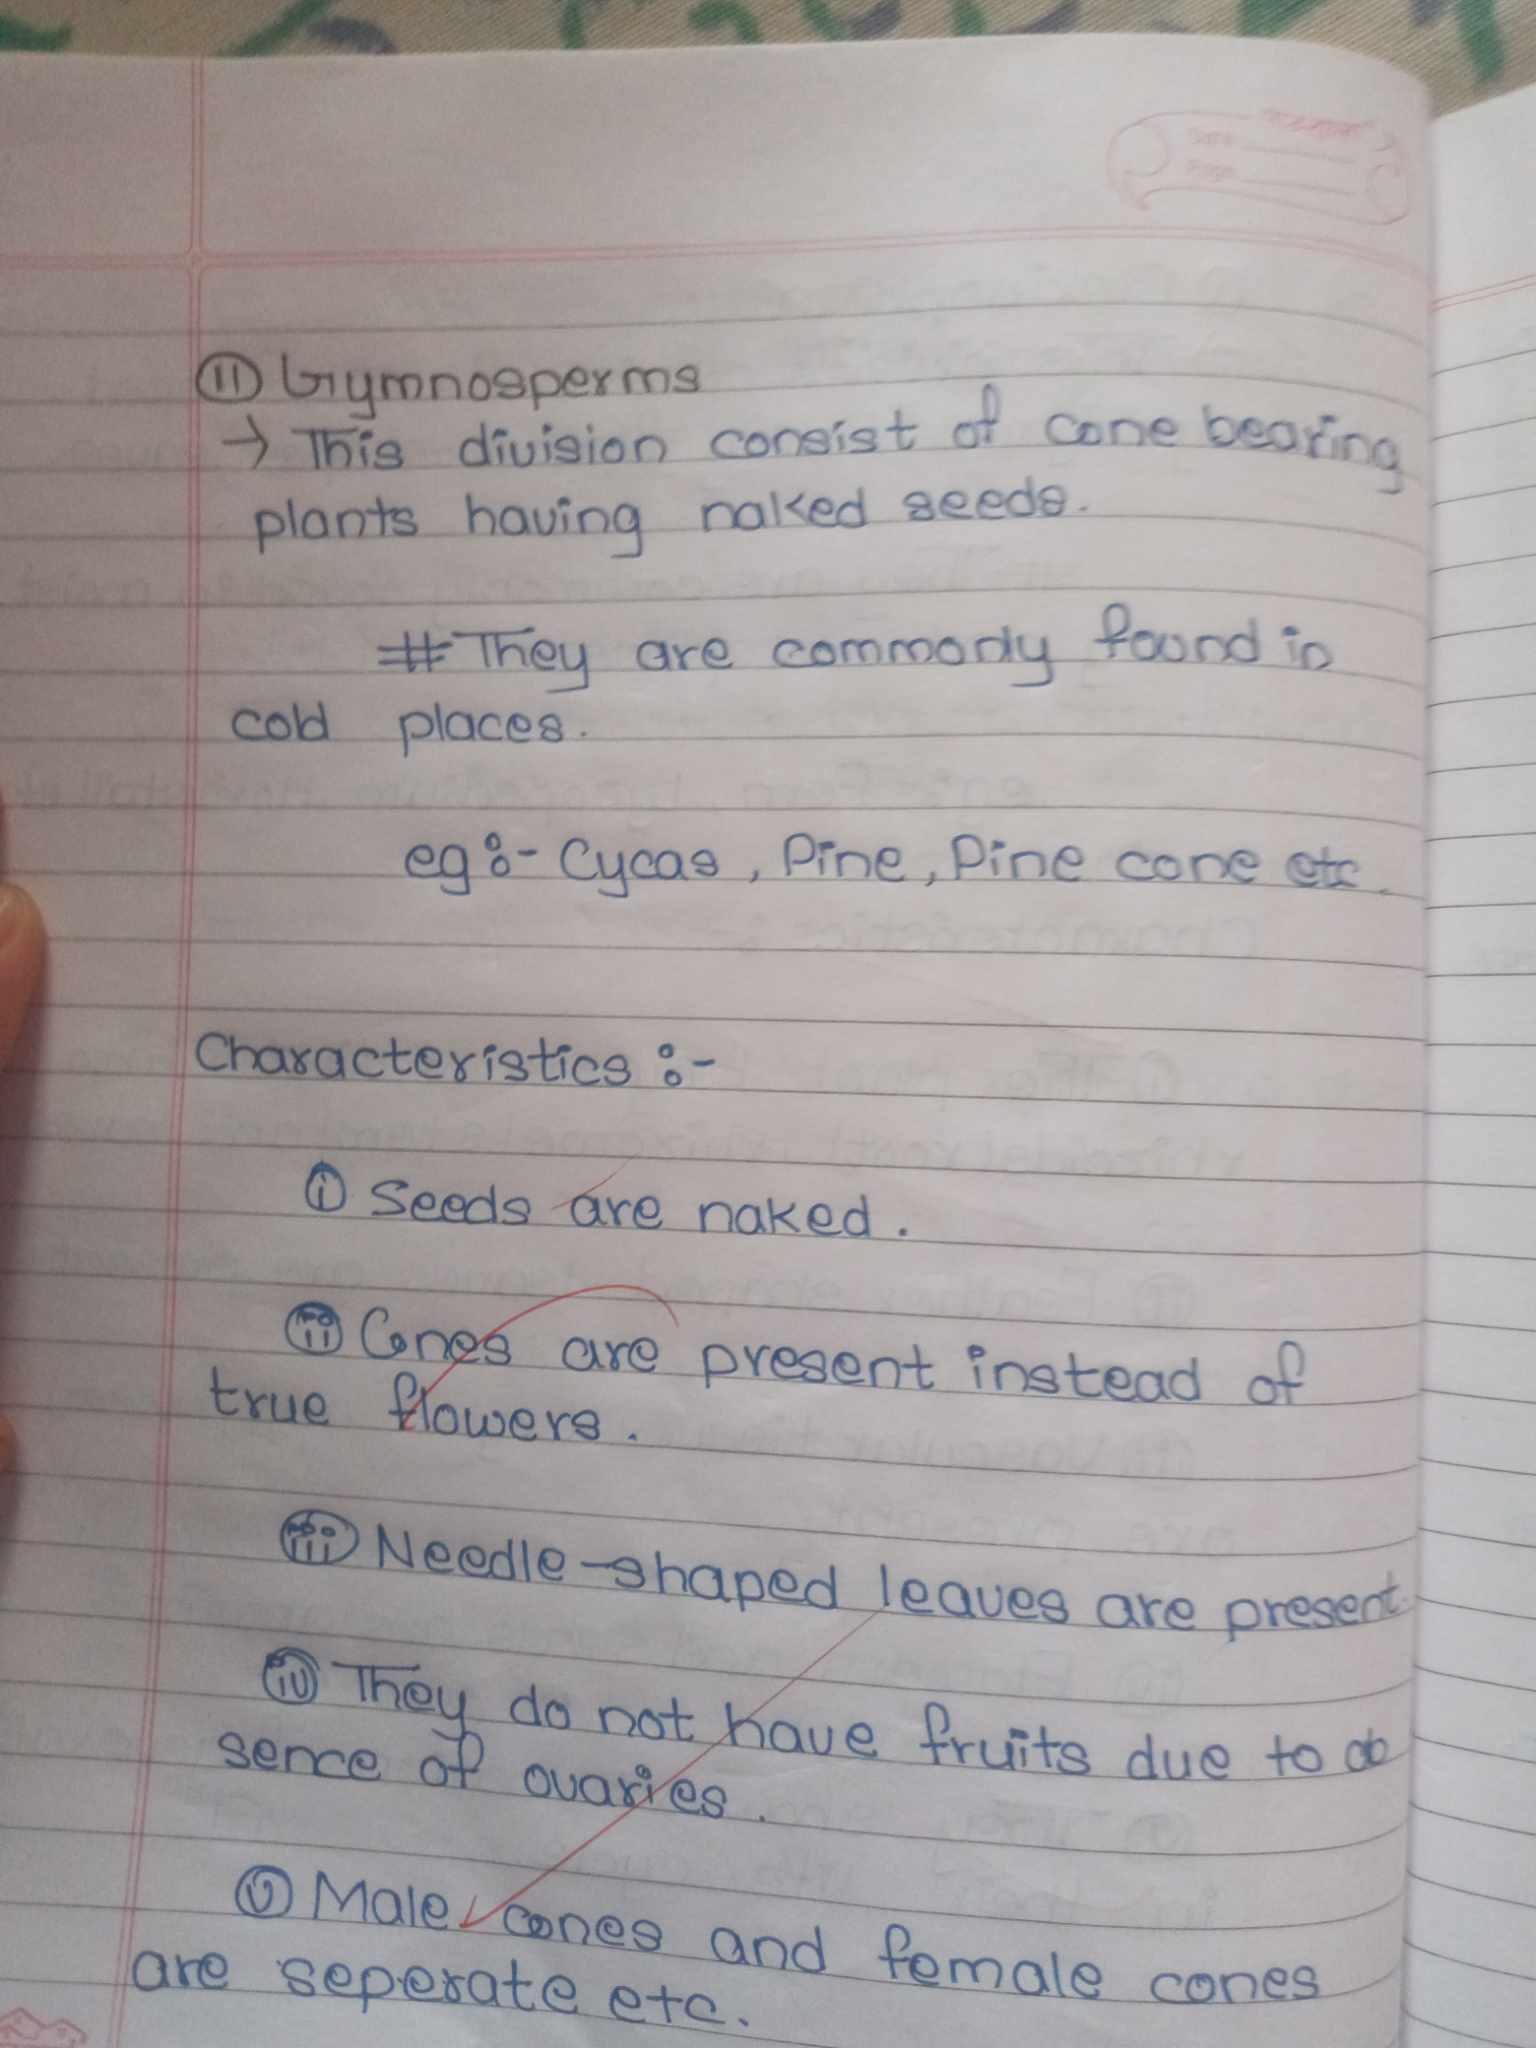 (ii) Gymnosperms
→ This division consist of cone bearing
plants having naked seeds.
# They are commonly found in
cold places.
eg:- Cycas, Pine, Pine cone etc.
Characteristics :-
(i) Seeds are naked.
(ii) Cones are present instead of
true flowers.
(iii) Needle-shaped leaves are present.
(iv) They do not have fruits due to ab
sence of ovaries.
(v) Male cones and female cones
are seperate etc.